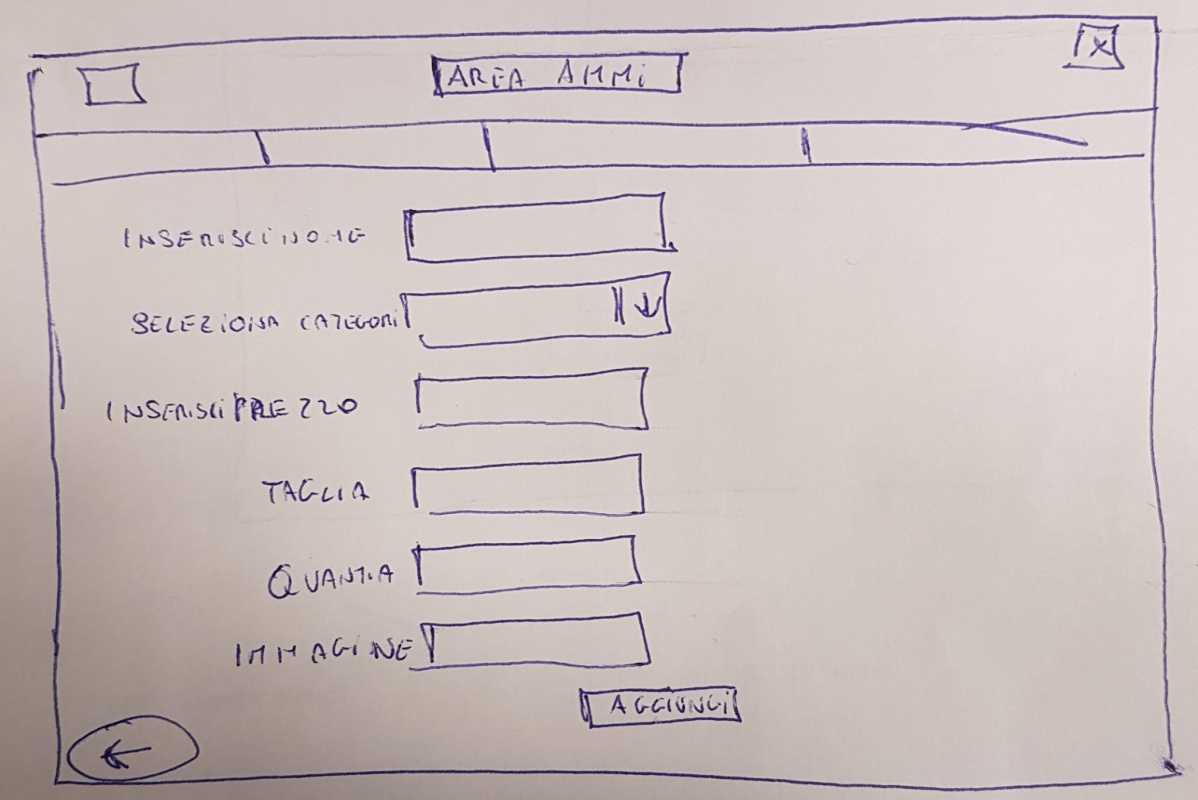 X
AREA AMMi
INSERISCI NOME
SELEZIONA CATEGORI
INSERISCI PREZZO
TAGLIA
QUANTIA
IMMAGINE
AGGIUNGI